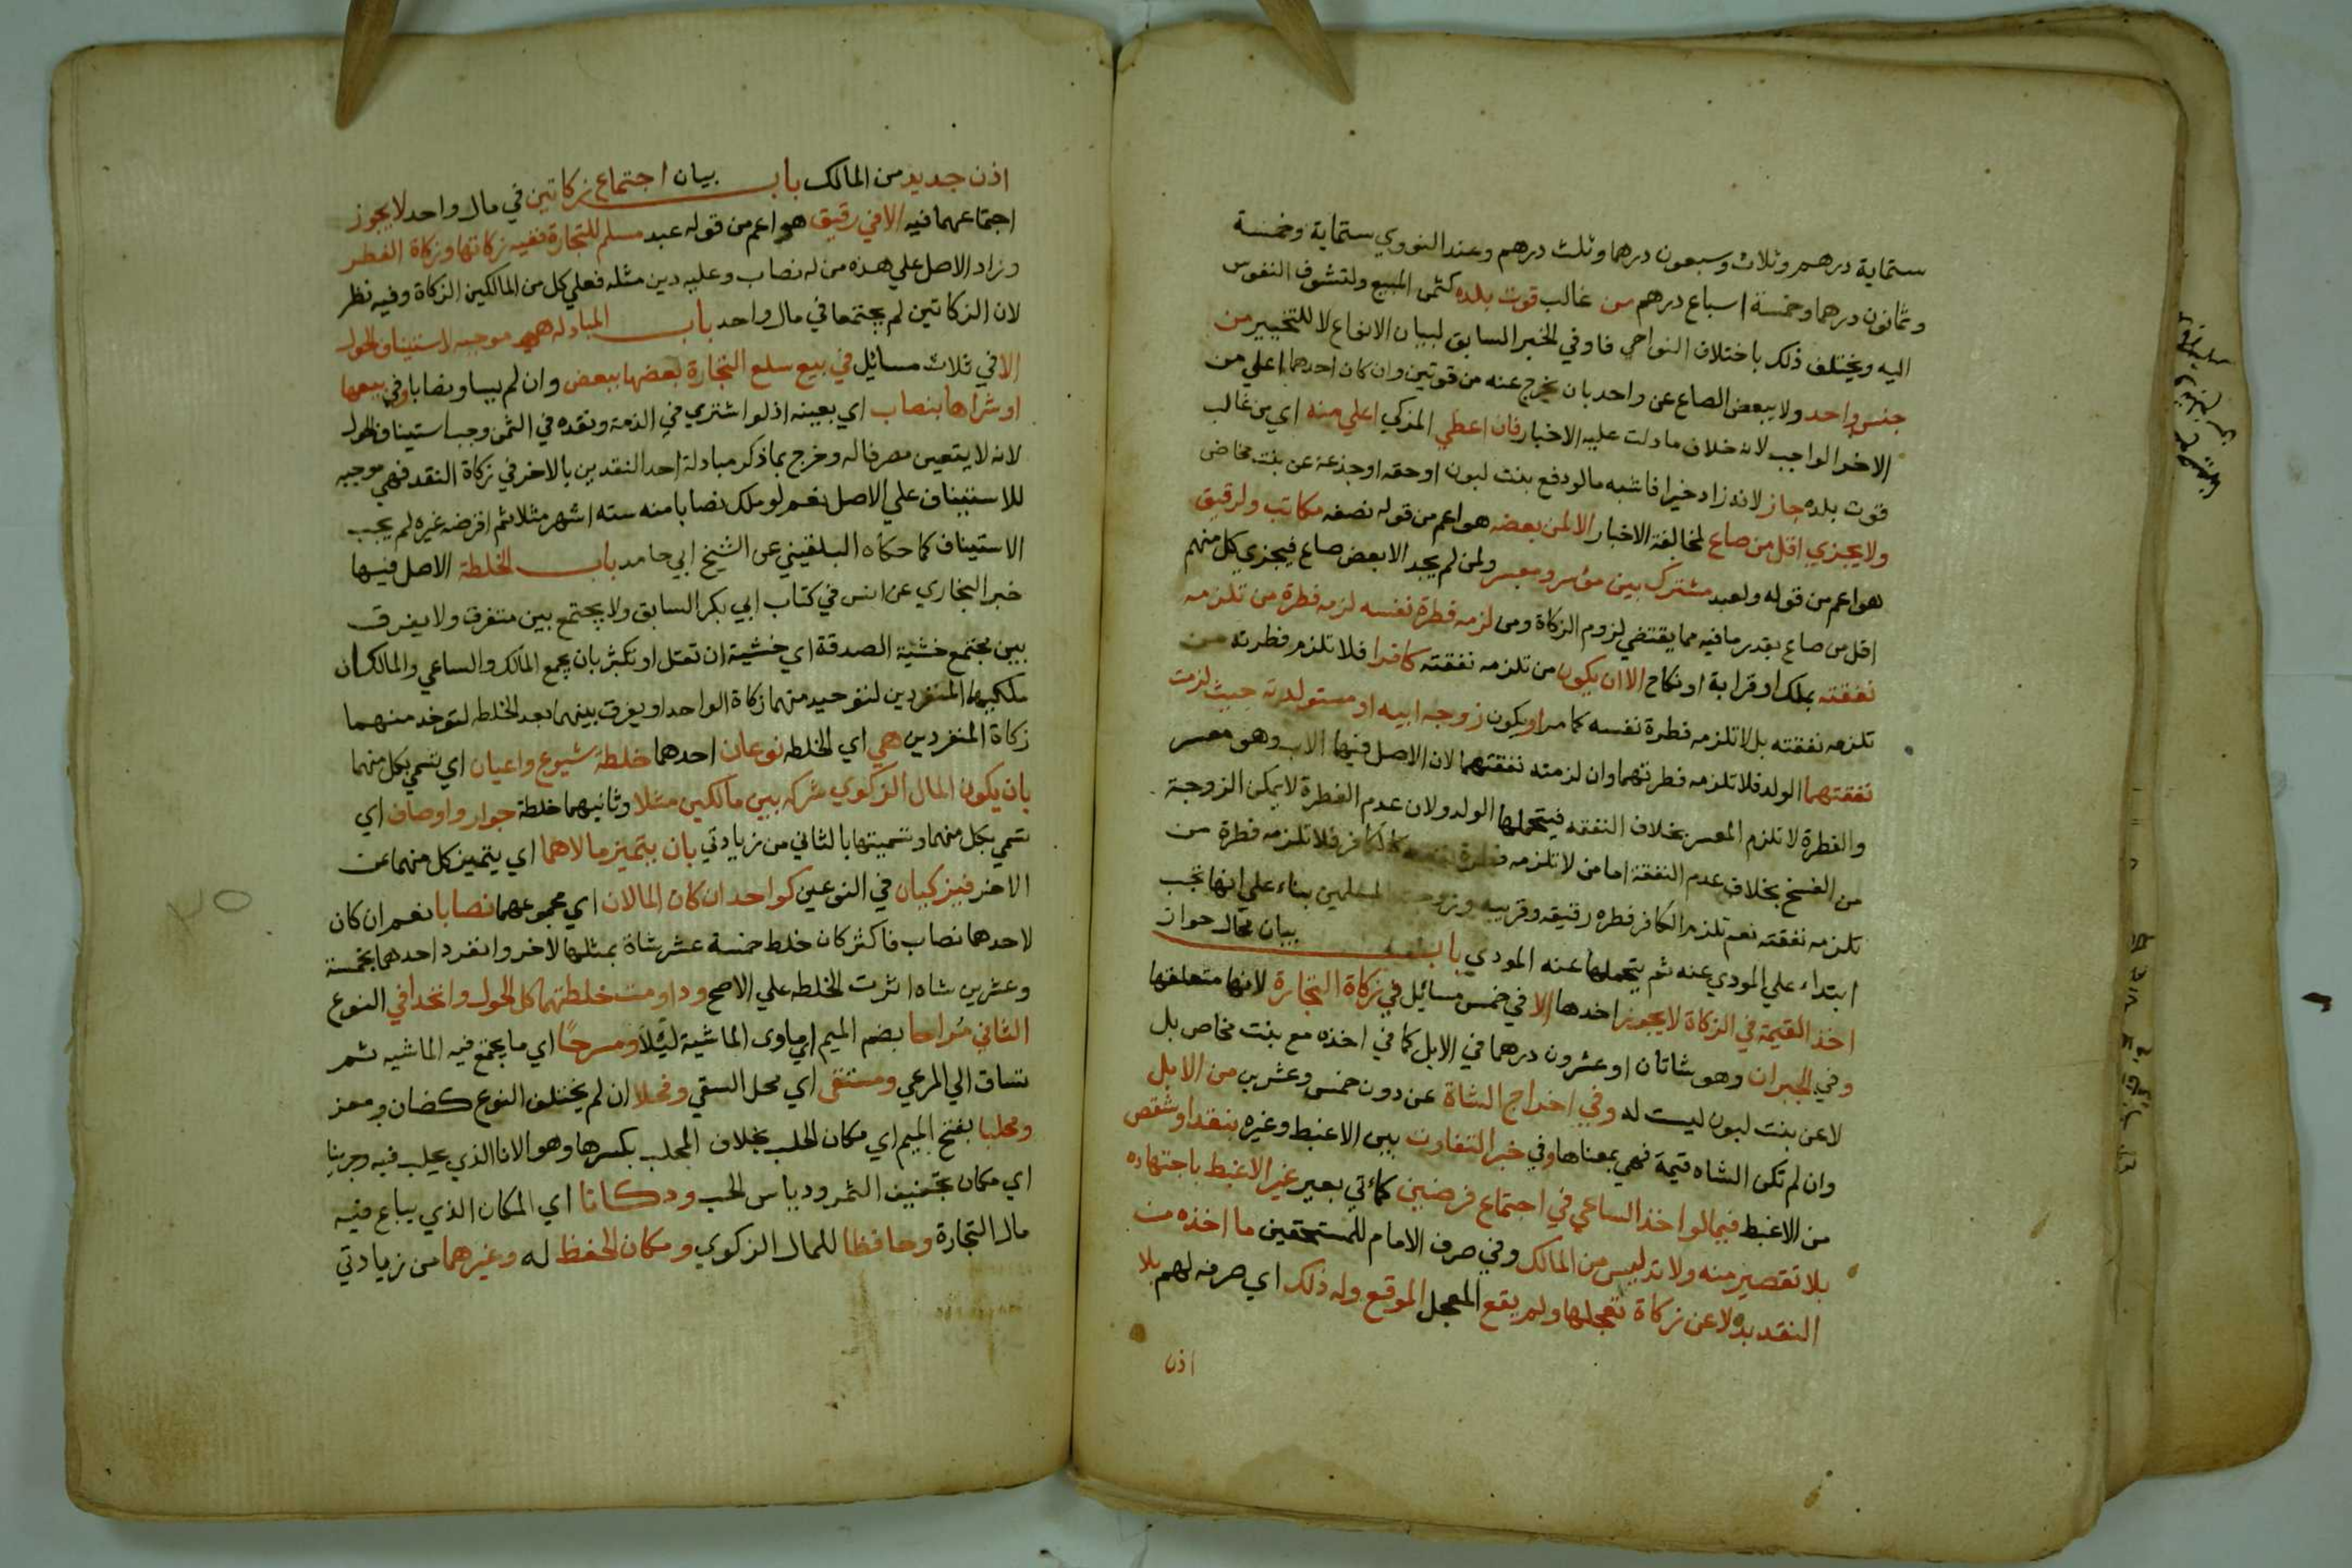 ستماية درهم وثلاث وسبعون درهما وثلث درهم وعند النووي ستماية وخمسة
وثمانون درهما وخمسة اسباع درهم من غالب قوت بلده كثمن المبيع ولتشوف النفوس
اليه ويختلف ذلك باختلاف النواحي فاو في الخبر السابق لبيان الانواع لا للتخيير من
جنس واحد ولا يبعض الصاع عن واحد بان يخرج عنه من قوتين وان كان احدهما اعلي من
الاخر الواجب لانه خلاف ما دلت عليه الاخبار فان اعطي المزكي اعلي منه اي من غالب
قوت بلده جاز لانه زاد خيرا فاشبه ما لو دفع بنت لبون او حقه او جذعة عن بنت مخاض
ولا يجزي اقل من صاع لمخالفة الاخبار الا لمن بعضه هو اعم من قوله نصفه مكاتب ولرقيق
هو اعم من قوله ولعبد مشترك بين موسر ومعسر ولمن لم يجد الا بعض صاع فيجزي كل منهم
اقل من صاع بقدر ما فيه مما يقتضي لزوم الزكاة ومن لزمه فطرة نفسه لزمه فطرة من تلزمه
نفقته بملك او قرابة او نكاح الا ان يكون من تلزمه نفقته كافرا فلا تلزم فطرته من
تلزمه نفقته بل لا تلزمه فطرة نفسه كما مر او يكون زوجه ابيه او مستولدته حيث لزمت
نفقتهما الولد فلا تلزمه فطرتهما وان لزمته نفقتهما لان الاصل فيها الاب وهو معسر
والفطرة لا تلزم المعسر بخلاف النفقه فيتحملها الولد ولان عدم الفطرة لا يمكن الزوجة
من الفسخ بخلاف عدم النفقة اما من لا تلزمه فطرة نفسه كالكافر فلا تلزمه فطرة من
تلزمه نفقته نعم تلزم الكافر فطره رقيقه وقريبه وزوجته المسلمين بناء علي انها تجب
ابتداء علي المودي عنه ثم يتحملها عنه المودي باب بيان محال جواز
اخذ القيمة في الزكاة لا يجوز اخذها الا في خمس مسائل في زكاة التجارة لانها متعلقها
وفي الجبران وهو شاتان او عشرون درهما في الابل كما في اخذه مع بنت مخاض بل
لا عن بنت لبون ليست له وفي اخراج الشاة عن دون خمس وعشرين من الابل
وان لم تكن الشاه قيمة فهي بمعناها وفي خبر التفاوت بين الاغبط وغيره بنقد او شقص
من الاغبط فيما لو اخذ الساعي في اجتماع فرضين كمائتي بعير غير الاغبط باجتهاده
بلا تقصير منه ولا تدليس من المالك وفي صرف الامام للمستحقين ما اخذه من
النقد بدلا عن زكاة تعجلها ولم يقع المعجل الموقع وله ذلك اي صرفه لهم بلا
اذن
اذن جديد من المالك باب بيان اجتماع زكاتين في مال واحد لا يجوز
اجتماعهما فيه الا في رقيق هو اعم من قوله عبد مسلم للتجارة ففيه زكاتها وزكاة الفطر
وزاد الاصل علي هذه من له نصاب وعليه دين مثله فعلي كل من المالكين الزكاة وفيه نظر
لان الزكاتين لم يجتمعا في مال واحد باب المبادله هي موجبه لاستيناف الحول
الا في ثلاث مسائل في بيع سلع التجارة بعضها ببعض وان لم يساو نصابا وفي بيعها
او شراها بنصاب اي بعينه اذ لو اشتري في الذمة ونقده في الثمن وجب استيناف الحول
لانه لا يتعين مصرفا له وخرج بما ذكر مبادلة احد النقدين بالاخر في زكاة النقد فهي موجبه
للاستيناف علي الاصل نعم لو ملك نصابا منه سته اشهر مثلا ثم اقرضه غيره لم يجب
الاستيناف كما حكاه البلقيني عن الشيخ ابي حامد باب الخلطة الاصل فيها
خبر البخاري عن انس في كتاب ابي بكر السابق ولا يجتمع بين متفرق ولا يفرق
بين مجتمع خشية الصدقة اي خشية ان تقل او تكثر بان يجمع المالك والساعي والمالكان
ملكيهما المنفردين لتوخيد منهما زكاة الواحد او يفرق بينهما بعد الخلطه لتوخد منهما
زكاة المنفردين هي اي الخلطه نوعان احدهما خلطة شيوع واعيان اي تسمي بكل منهما
بان يكون المال الزكوي شركه بين مالكين مثلا وثانيهما خلطة جوار واوصاف اي
تسمي بكل منهما وتسميتها بالثاني من زيادتي بان يتميز مالاهما اي يتميز كل منهما عن
الاخر فيزكيان في النوعين كواحد ان كان المالان اي مجموعهما نصابا نعم ان كان
لاحدهما نصاب فاكثر كان خلط خمسة عشر شاة بمثلها لاخر وانفرد احدهما بخمسة
وعشرين شاه اثرت الخلطه علي الاصح وداومت خلطتهما كل الحول واتحدا في النوع
الثاني مُراحا بضم الميم اي ماوى الماشية ليلا ومسرحًا اي ما يجتمع فيه الماشيه ثم
تساق الي المرعي ومستقى اي محل السقي وفحلا ان لم يختلف النوع كضان ومعز
ومحلبا بفتح الميم اي مكان الحلب بخلاف المحلب بكسرها وهو الانا الذي يحلب فيه وجرينا
اي مكان تجفيف الثمر ودياس الحب ودكانا اي المكان الذي يباع فيه
مال التجارة وحافظا للمال الزكوي ومكان الحفظ له وغيرهما من زيادتي